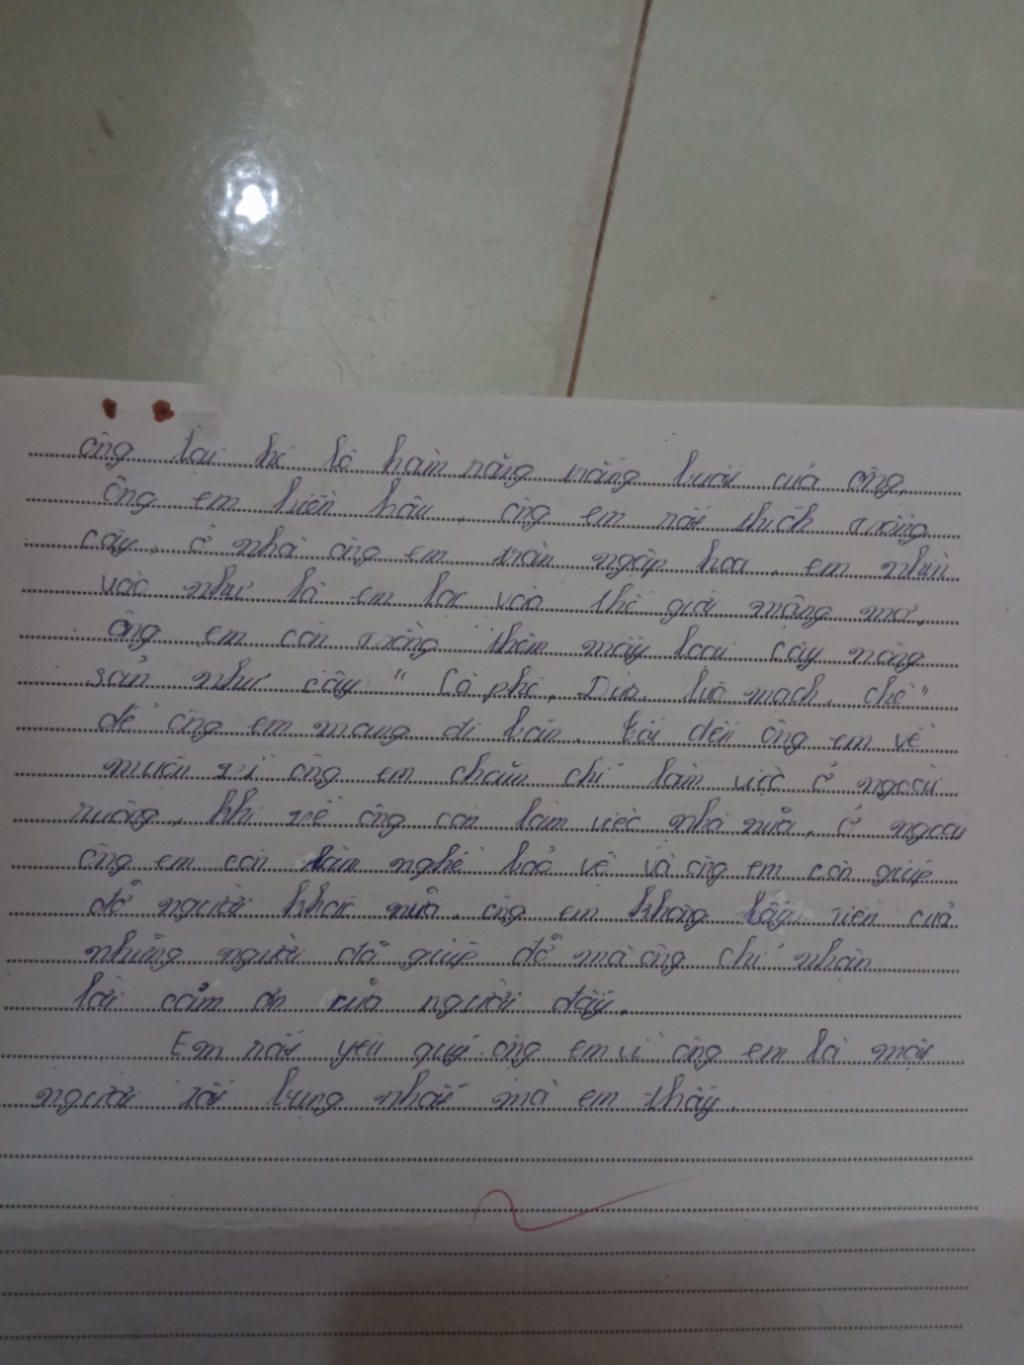 ông lại hé lộ hàm răng trắng buốt của ông.
ông em hiền hậu, ông em rất thích trồng
cây, ở nhà ông em tràn ngập hoa, em nhìn
vào như là em lạc vào thế giới mộng mơ,
ông em còn trồng thêm mấy loại cây nông
sản như cây: " Cà phê, Dừa, lúa mạch, chè"
để ông em mang đi bán. đến ông em về
muộn vì ông em chăm chỉ làm việc ở ngoài
ruộng, khi về ông còn làm việc nhà nữa, ở ngoài
ông em còn làm nghề bảo vệ và ông em còn giúp
đỡ người khác nữa. ông em không lấy tiền của
những người đã giúp đỡ mà ông chỉ nhận
lời cảm ơn của người đấy.
Em rất yêu quý ông em vì ông em là một
người tốt bụng nhất mà em thấy.